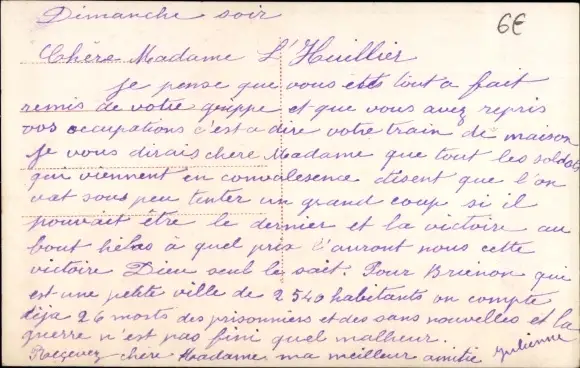 Dimanche soir
6€
Chère Madame L'Huillier
je pense que vous etes tout a fait
remis de votre grippe et que vous avez repris
vos occupations c'est a dire votre train de maison
je vous dirais chere Madame que tout les soldats
qui viennent en convalesence disent que l'on
vat sous peu tenter un grand coup si il
pouvait être le dernier et la victoire au
bout hélas à quel prix l'auront nous cette
victoire Dieu seul le sait. Pour Brienon qui
est une petite ville de 2540 habitants on compte
déja 26 morts des prisonniers et des sans nouvelles et la
guerre n'est pas fini quel malheur.
Recevez chère Madame ma meilleur amitié Julienne